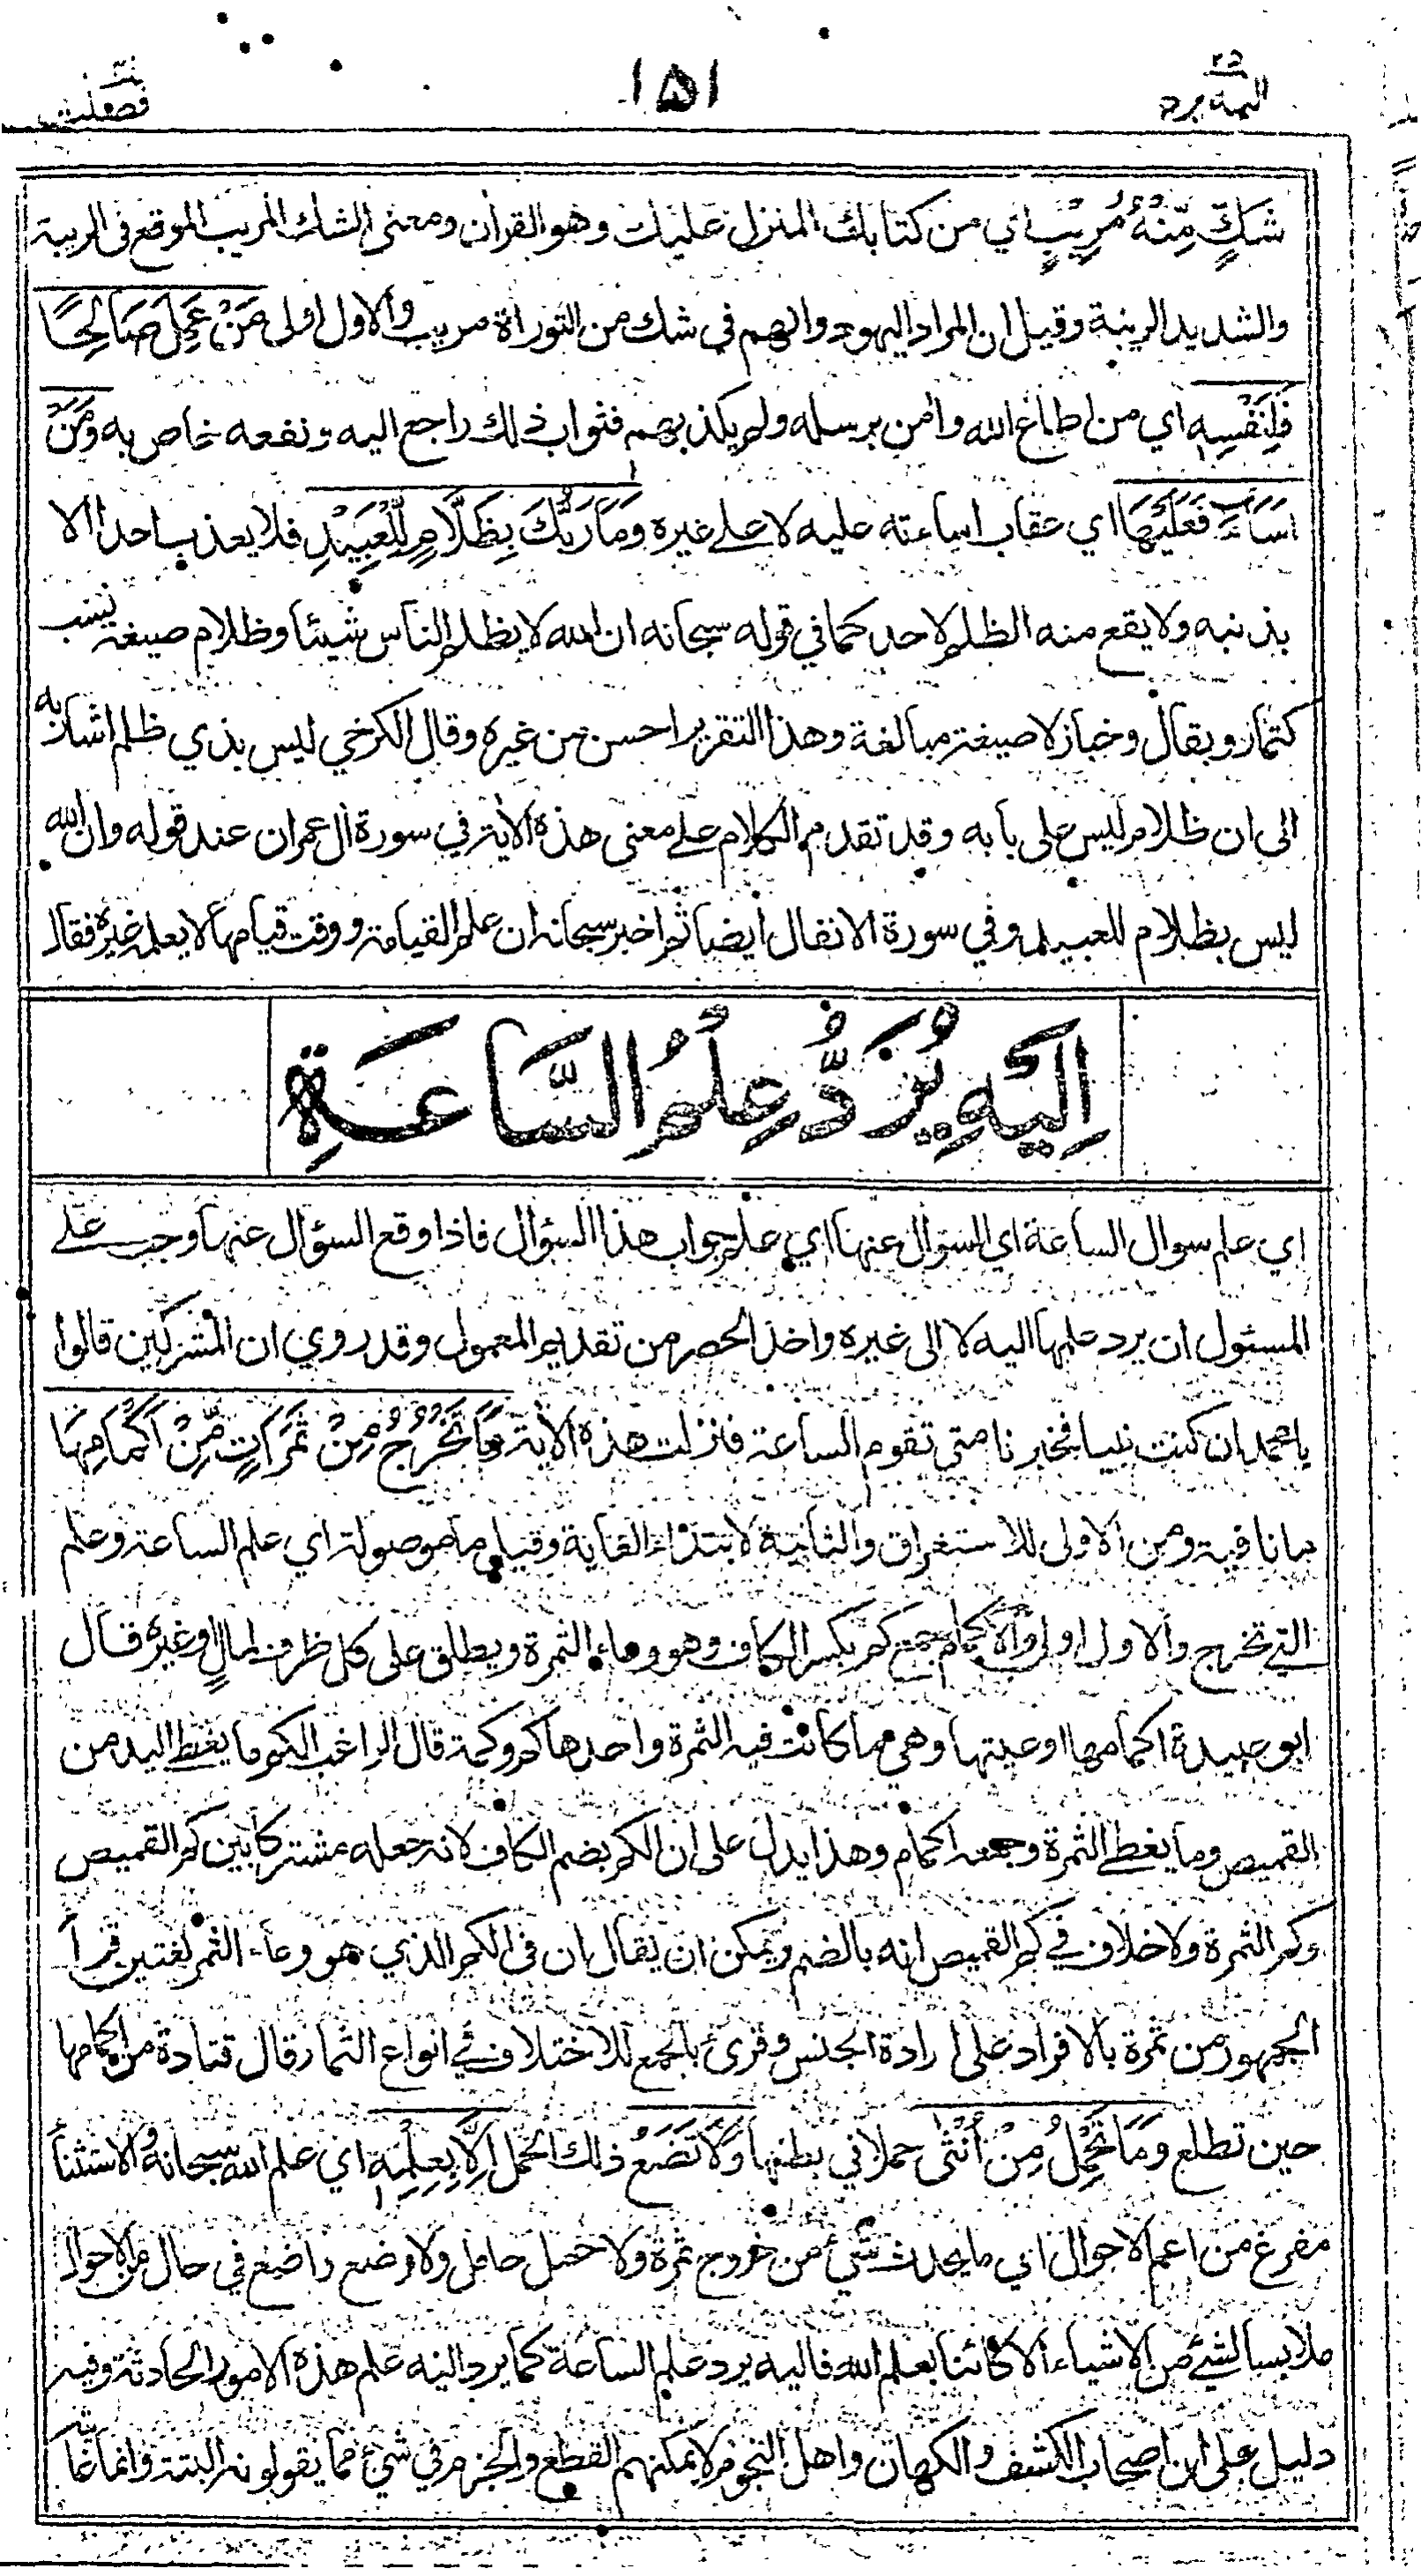 ٢٥
اليه يرد
١٥١
فصلت
شَكٍّ مِّنْهُ مُرِيْبٍ اي من كتابك المنزل عليك وهو القرأن ومعنى الشك المريب الموقع فى الريبة
والشديد الريبة وقيل ان المراد اليهود وانهم في شك من التوراة مريب والاول اولى مَنْ عَمِلَ صَالِحًا
فَلِنَفْسِهٖ اي من اطاع الله وأمن برسله ولم يكذبهم فثواب ذلك راجع اليه ونفعه خاص به وَمَنْ
اَسَآءَ فَعَلَيْهَا اي عقاب اساءته عليه لا على غيره وَمَا رَبُّكَ بِظَلَّامٍ لِّلْعَبِيْدِ فلا يعذب احدا الا
بذنبه ولا يقع منه الظلم لاحد كما في قوله سبحانه ان الله لا يظلم الناس شيئا وظلام صيغة نسب
كتمار وبقال وخباز لا صيغة مبالغة وهذا التقرير احسن من غيره وقال الكرخي ليس بذي ظلم اشار به
الى ان ظلام ليس على بابه وقد تقدم الكلام على معنى هذه الأية في سورة أل عمران عند قوله وان الله
ليس بظلام للعبيد وفي سورة الانفال ايضا ثم اخبر سبحانه ان علم القيامة ووقت قيامها لا يعلمه غيره فقال
اِلَيْهِ يُرَدُّ عِلْمُ السَّاعَةِ
اي علم سوال الساعة اي السوال عنها اي علم جواب هذا السؤال فاذا وقع السؤال عنها وجب على
المسئول ان يرد علمها اليه لا الى غيره واخذ الحصر من تقديم المعمول وقد روي ان المشركين قالوا
يا محمد ان كنت نبيا فخبرنا متى تقوم الساعة فنزلت هذه الأية وَمَا تَخْرُجُ مِنْ ثَمَرَاتٍ مِّنْ اَكْمَامِهَا
ما نافية ومن الاولى للاستغراق والثانية لابتداء الغاية وقيل ما موصولة اي علم الساعة وعلم
التي تخرج والاول اولى والاكمام جمع كم بكسر الكاف وهو وعاء الثمرة ويطلق على كل ظرف لمال او غيره قال
ابو عبيدة اكمامها اوعيتها وهي ما كانت فيه الثمرة واحدها كم وكمة قال الراغب الكم ما يغطي اليد من
القميص وما يغطي الثمرة وجمعه اكمام وهذا يدل على ان الكم بضم الكاف لانه جعله مشتركا بين كم القميص
وكم الثمرة ولا خلاف في كم القميص انه بالضم ويمكن ان يقال ان فى الكم الذي هو وعاء الثمر لغتين قرأ
الجمهور من ثمرة بالافراد على ارادة الجنس وقرئ بالجمع للاختلاف في انواع الثمار قال قتادة من اكمامها
حين تطلع وَمَا تَحْمِلُ مِنْ اُنْثٰى حملا في بطنها وَلَا تَضَعُ ذلك الحمل اِلَّا بِعِلْمِهٖ اي علم الله سبحانه والاستثناء
مفرغ من اعم الاحوال اي ما يحدث شئ من خروج ثمرة ولا حمل حامل ولا وضع واضع في حال من الاحوال
ملابسا لشئ من الاشياء الا كائنا بعلم الله فاليه يرد علم الساعة كما يرد اليه علم هذه الامور الحادثة وفيه
دليل على ان اصحاب الكشف والكهان واهل النجوم لا يمكنهم القطع والجزم في شئ مما يقولونه البتة وانما